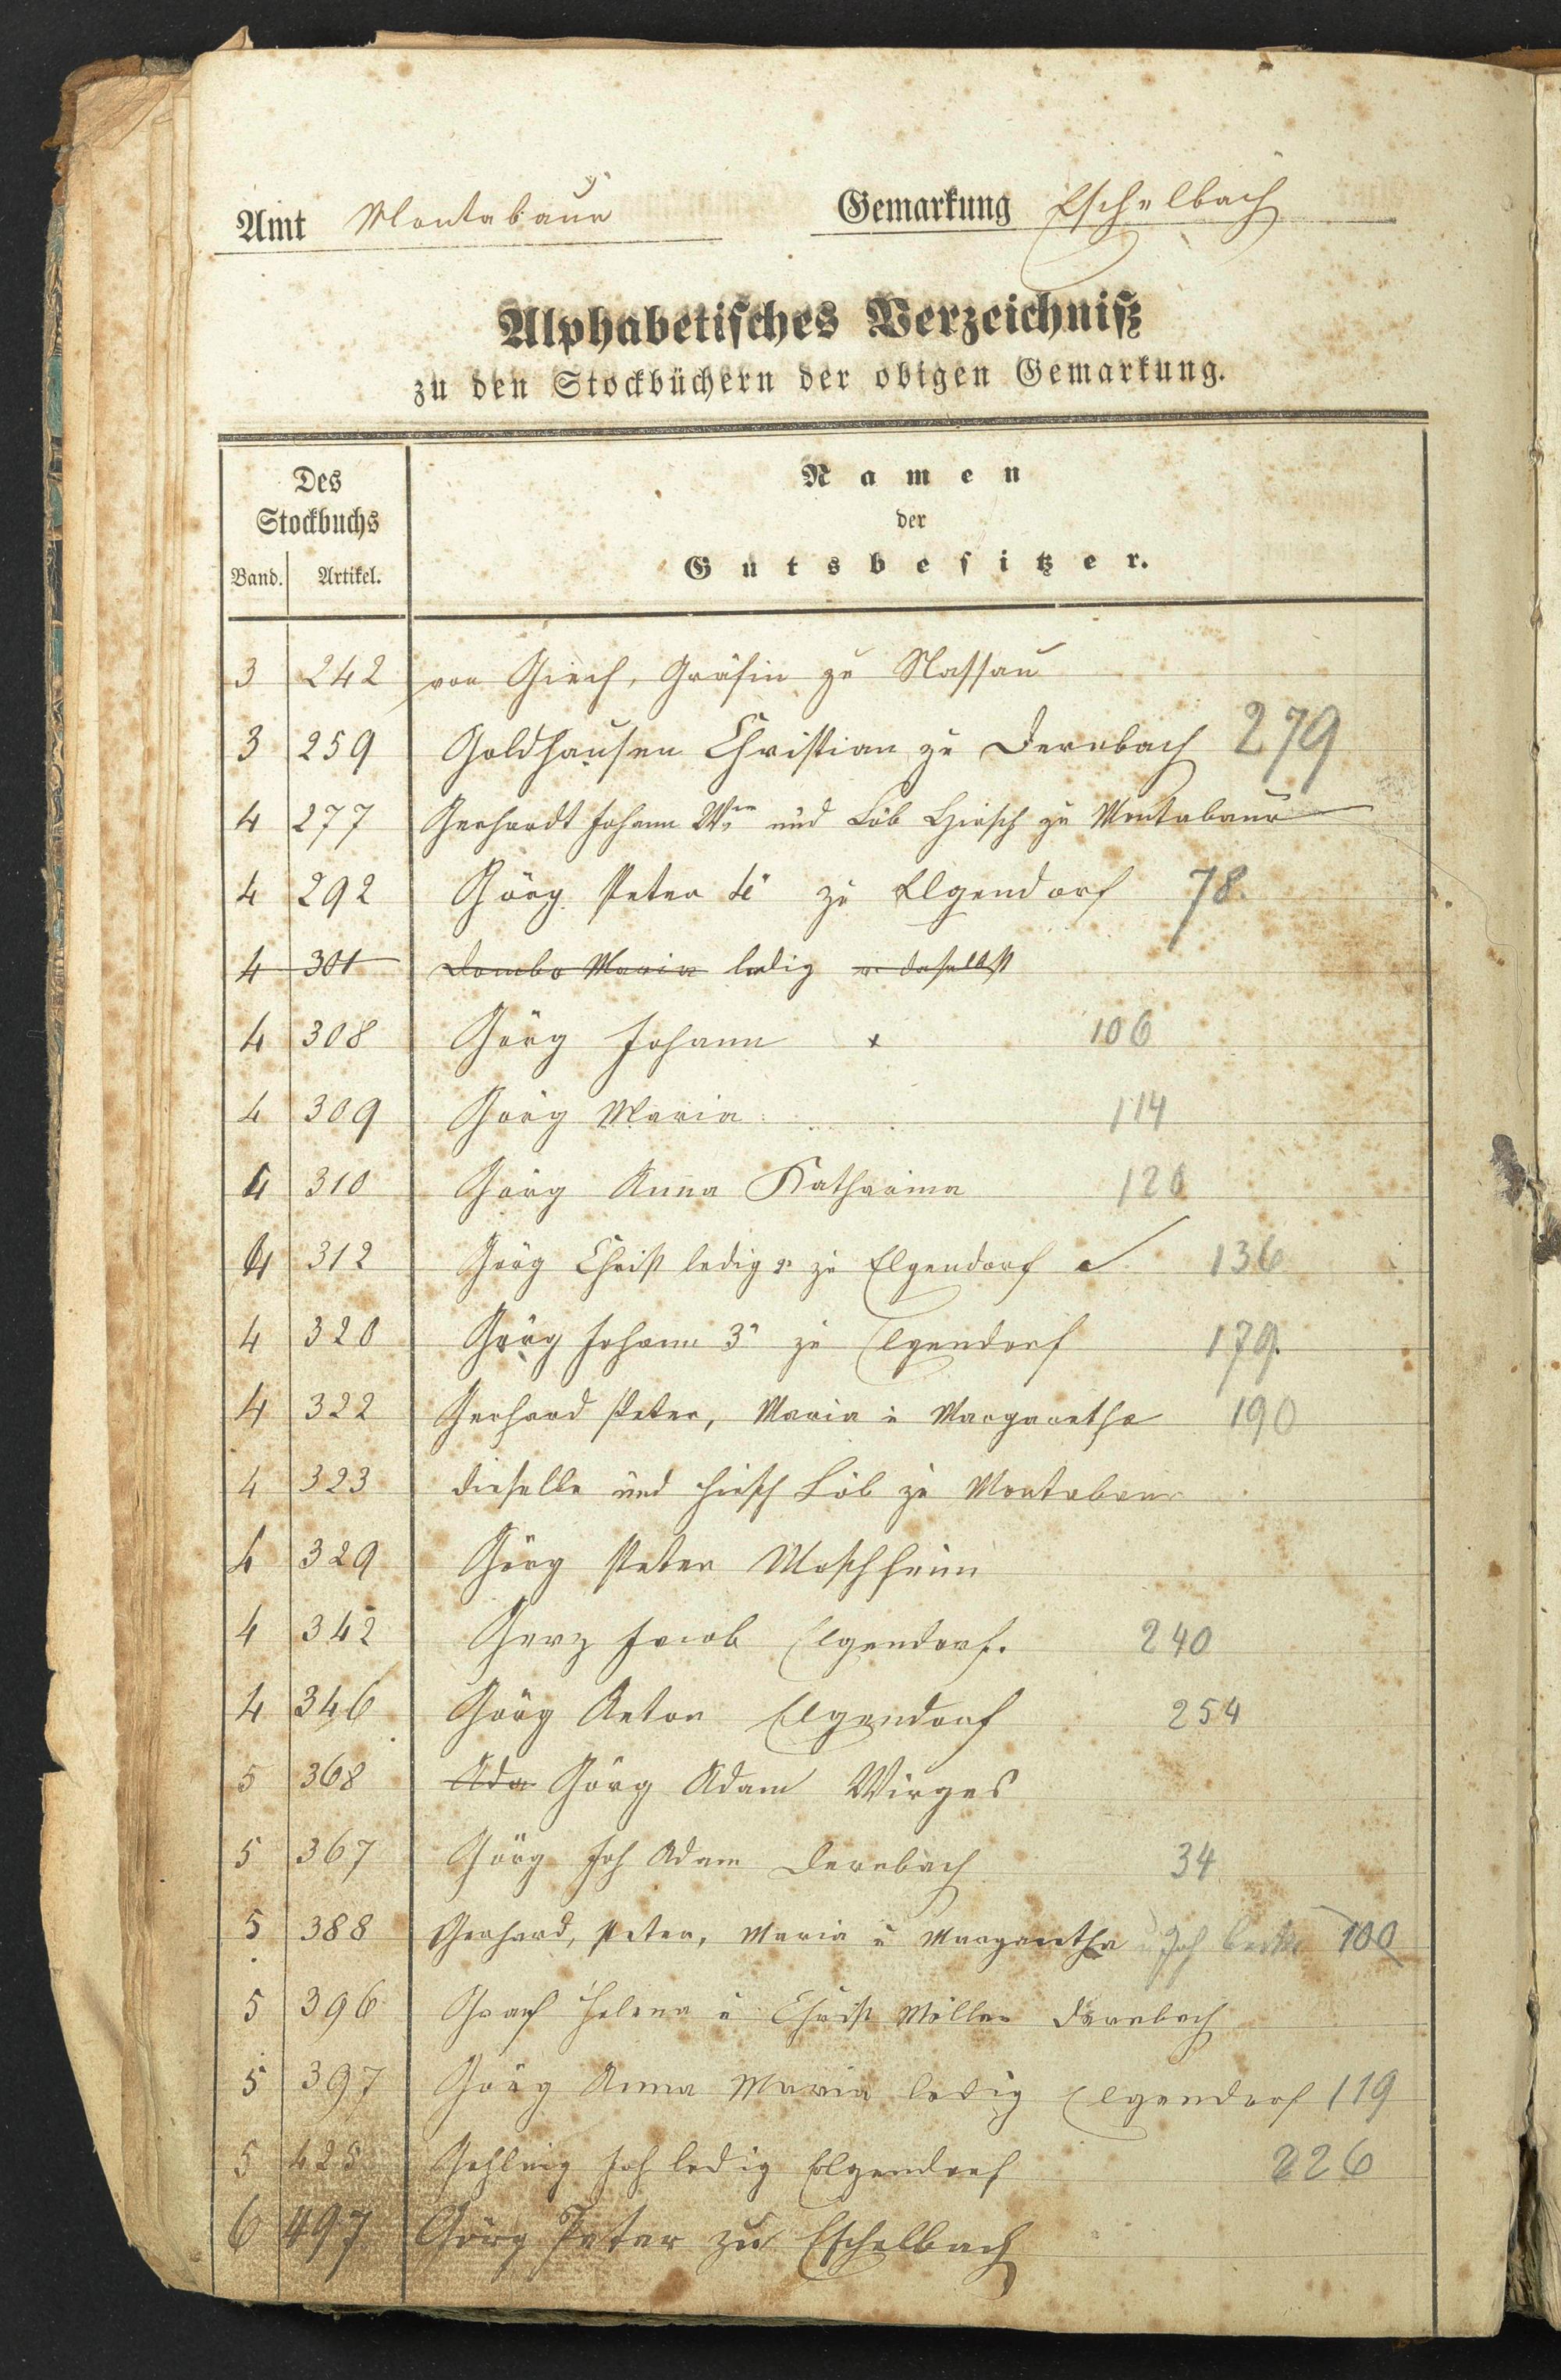 Amt Montabaur Gemarkung Eschelbach
Alphabetisches Verzeichniß
zu den Stockbüchern der obigen Gemarkung.
Des Stockbuchs
Namen
der
Gutsbesitzer.
Band. Artikel.
3 242 von Giech, Gräfin zu Nassau
3 259 Goldhausen Christian zu Dernbach 279
4 277 Gerhardt Johann Wwe und Löb Hirsch zu Montabaur
4 292 Görg Peter zu Elgendorf 78.
4 301 Dombo Maria ledig daselbst
4 308 Görg Johann x 106
4 309 Görg Maria 114
4 310 Görg Anna Katharina 120
4 312 Görg Christ ledig zu Elgendorf 136
4 320 Görg Johann 3r zu Elgendorf 179.
4 322 Gerhard Peter, Maria u Margaretha 190
4 323 dieselbe und Hirsch Löb zu Montabaur
4 329 Görg Peter Moschheim
4 342 Gerz Jacob Elgendorf. 240
4 346 Görg Anton Elgendorf 254
5 368 Ada Görg Adam Wirges
5 367 Görg Joh Adam Dernbach 34
5 388 Gerhard, Peter, Maria u Margaretha u Joh 100
5 396 Graf Helena u Christ Möller Dernbach
5 397 Görg Anna Maria ledig Elgendorf 119
5 425 Joh ledig Elgendorf 226
6 497 Görg Peter zu Eschelbach